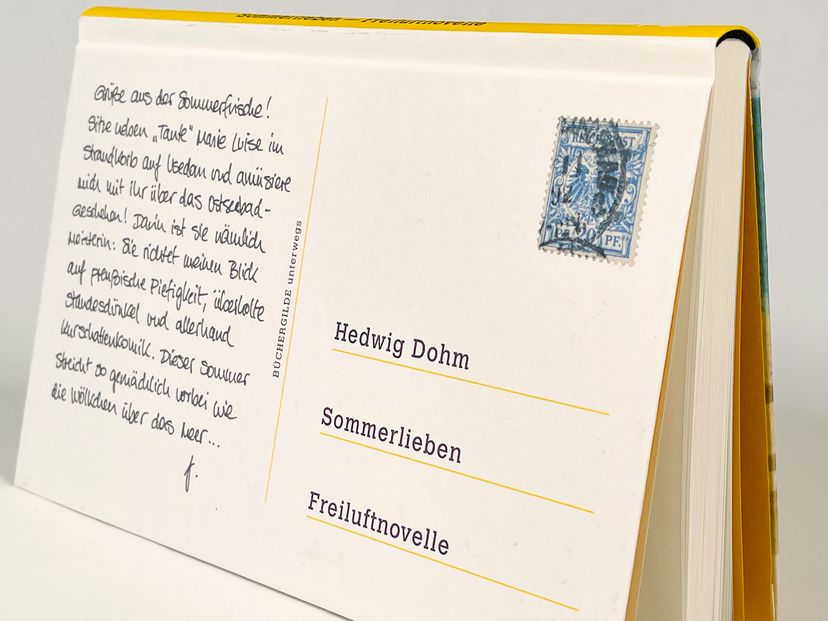 Sommerlieben – Freiluftnovelle
Grüße aus der Sommerfrische!
Sitze neben „Tante“ Marie Luise im
Strandkorb auf Usedom und amüsiere
mich mit ihr über das Ostseebad-
Geschehen! Darin ist sie nämlich
Meisterin: Sie richtet meinen Blick
auf preußische Piefigkeit, überholte
Standesdünkel und allerhand
Kurschattenkomik. Dieser Sommer
streicht so gemächlich vorbei wie
die Wölkchen über das Meer...
f.
BÜCHERGILDE unterwegs
REICHSPOST
20 PF.
Hedwig Dohm
Sommerlieben
Freiluftnovelle